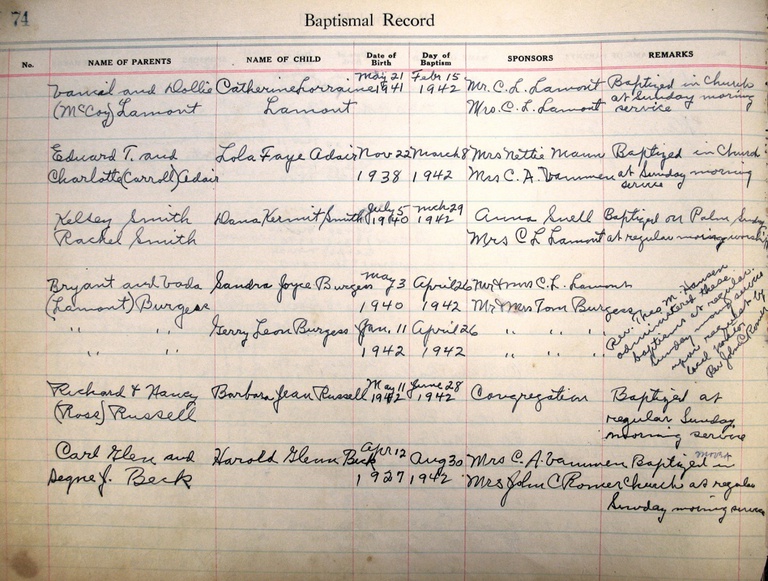 74
Baptismal Record
No. NAME OF PARENTS NAME OF CHILD Date of Birth Day of Baptism SPONSORS REMARKS
and Dollie Catherine Lorraine May 21 Febr 15 Mr. C. L. Lamont Baptized in Church
(McCoy) Lamont Lamont 1941 1942 Mrs. C. L. Lamont at Sunday morning
service
Edward T. and Lola Faye Adair Nov 22 March 8 Mrs Nettie Mann Baptized in Church
Charlotte (Carroll) Adair 1938 1942 Mrs C. A. Vammen at Sunday morning
service
Kelsey Smith Dana Kermit Smith July 5 Mch 29 Anna Snell Baptized on Palm Sunday
Rachel Smith 1940 1942 Mrs C L Lamont at regular morning worship
Bryant and Vada Sandra Joyce Burgess May 3 April 26 Mr & Mrs C. L. Lamont
(Lamont) Burgess 1940 1942 Mr & Mrs Tom Burgess
" " Gerry Leon Burgess Jan. 11 April 26 " " " "
" " 1942 1942 " " " "
Rev. Theo. M. Hansen
administered these
baptisms at regular
Sunday morning service
upon request by
local pastor
Rev John C Romer
Richard & Nancy Barbara Jean Russell May 11 June 28 Congregation Baptized at
(Ross) Russell 1942 1942 regular Sunday
morning service
Carl Glen and Harold Glenn Beck Apr 12 Aug 30 Mrs C. A. Vammen Baptized in
J. Beck 1927 1942 Mrs John C Romer Church at regular
Sunday morning service